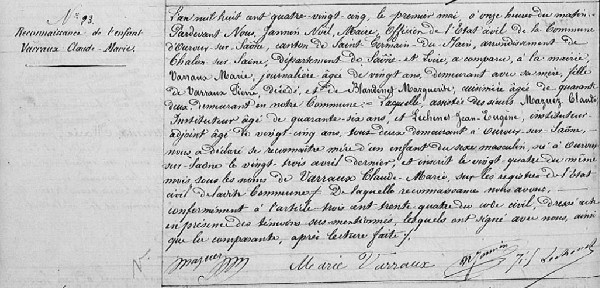 N° 93.
Reconnaissance de l'enfant
Varraux Claude-Marie.
L'an mil huit cent quatre-vingt-cinq, le premier mai à onze heures du matin
Pardevant Nous, Jannin Noël, Maire, Officier de l'Etat civil de la Commune
d'Ouroux-sur-Saône, canton de Saint-Germain-du-Plain, arrondissement de
Chalon-sur-Saône, Département de Saône-et-Loire, a comparu, à la mairie,
Varraux Marie, journalière âgée de vingt ans demeurant avec sa mère, fille
de Varraux Pierre, Décédé, et de Blanding Marguerite, cuisinière âgée de quarante
deux, demeurant en notre Commune; Laquelle, assistée des sieurs Magnien Claude
Instituteur âgé de quarante-six ans, et Lechenet Jean Eugène, instituteur-
adjoint âgé de vingt-cinq ans, tous deux demeurant à Ouroux-sur-Saône,
nous a déclaré se reconnaître mère d'un enfant du sexe masculin, né à Ouroux
sur-Saône le vingt-trois avril dernier, et inscrit le vingt-quatre du même
mois sous les noms de Varraux Claude-Marie, sur les registres de l'Etat
civil de ladite Commune. De laquelle reconnaissance nous avons,
conformément à l'article trois cent trente-quatre du code civil, dressé acte
en présence des témoins sus-mentionnés, lesquels ont signé avec nous, ainsi
que la comparante, après lecture faite.
Marie Varraux